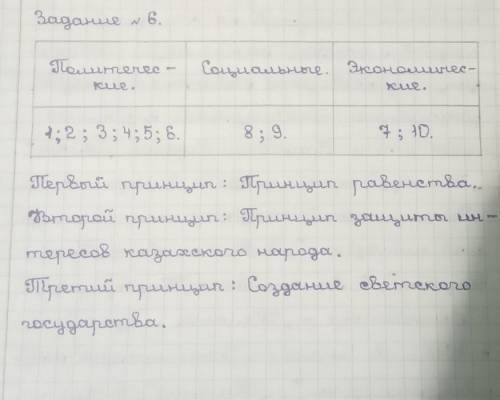 Задание № 6.
Политечес- Социальные. Экономичес-
кие. кие.
1; 2; 3; 4; 5; 6. 8; 9. 7; 10.
Первый принцип: Принцип равенства.
Второй принцип: Принцип защиты ин-
тересов казахского народа.
Третий принцип: Создание светского
государства.